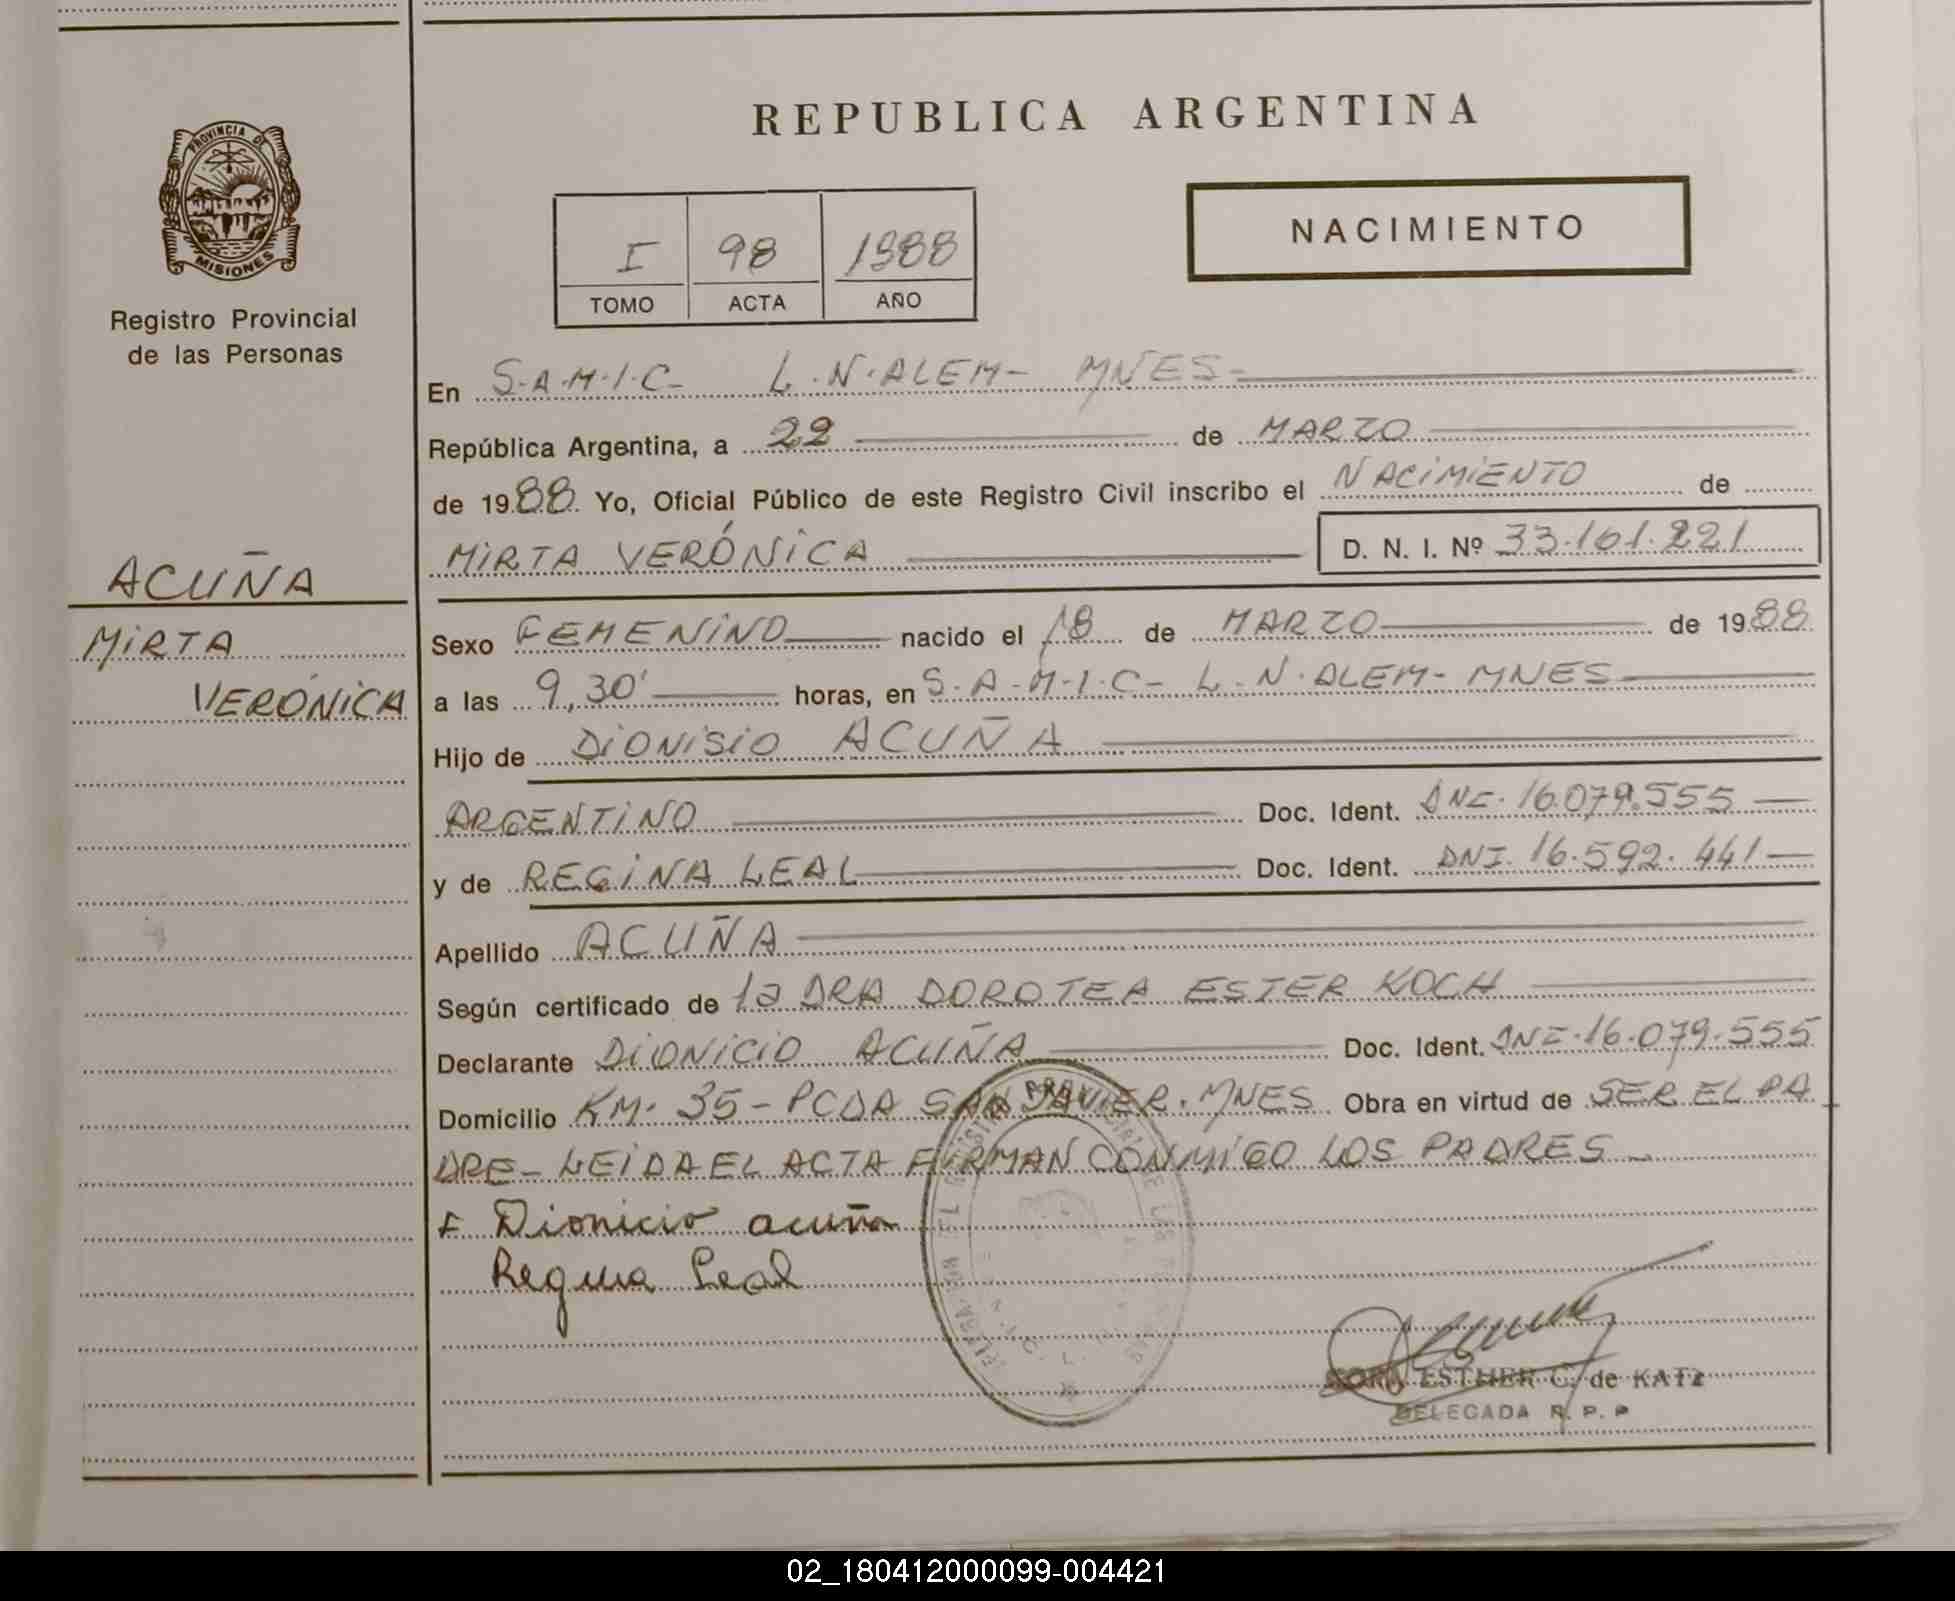 REPUBLICA ARGENTINA
PROVINCIA DE
MISIONES
Registro Provincial
de las Personas
I 98 1988
TOMO ACTA AÑO
NACIMIENTO
En S.A.M.I.C- L.N.ALEM- MNES-
República Argentina, a 22 de MARZO
de 1988 Yo, Oficial Público de este Registro Civil inscribo el NACIMIENTO de
MIRTA VERÓNICA D. N. I. Nº 33.161.221
ACUÑA
MIRTA
VERÓNICA
Sexo FEMENINO nacido el 18 de MARZO de 1988
a las 9,30' horas, en S.A-M.I.C- L.N.ALEM- MNES
Hijo de DIONISIO ACUÑA
ARGENTINO Doc. Ident. DNI. 16.079.555
y de REGINA LEAL Doc. Ident. DNI. 16.592.441
Apellido ACUÑA
Según certificado de la DRA DOROTEA ESTER KOCH
Declarante DIONICIO ACUÑA Doc. Ident. DNI.16.079.555
Domicilio KM. 35- PCDA SAN JAVIER. MNES Obra en virtud de SER EL PA
DRE- LEIDA EL ACTA FIRMAN CONMIGO LOS PADRES-
Dionicio acuña
Regina Leal
ESTHER C. de KATZ
DELEGADA R. P. P
02_180412000099-004421